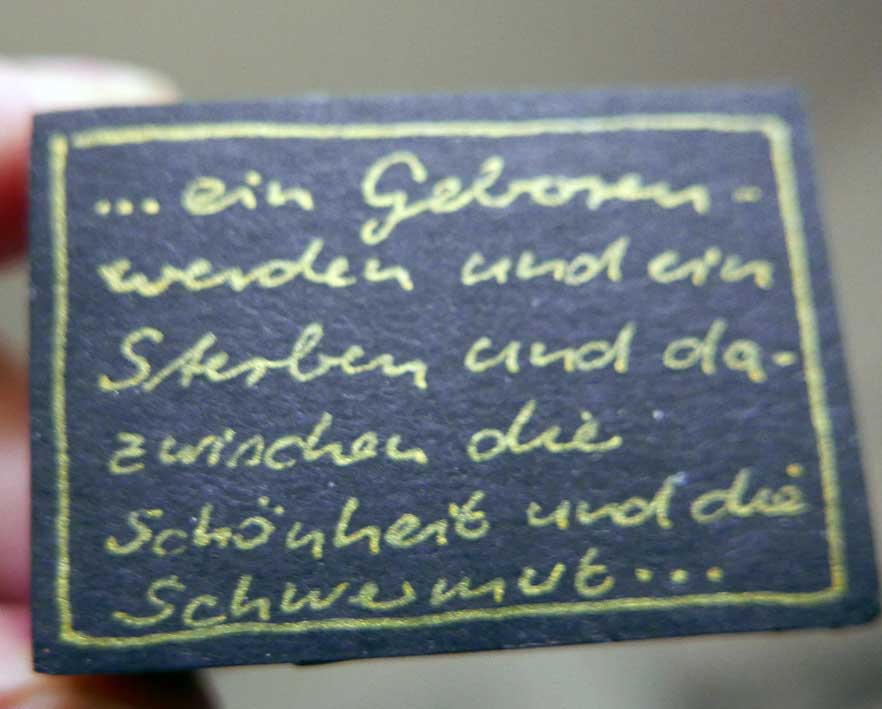 ... ein Geboren-
werden und ein
Sterben und da-
zwischen die
Schönheit und die
Schwermut...